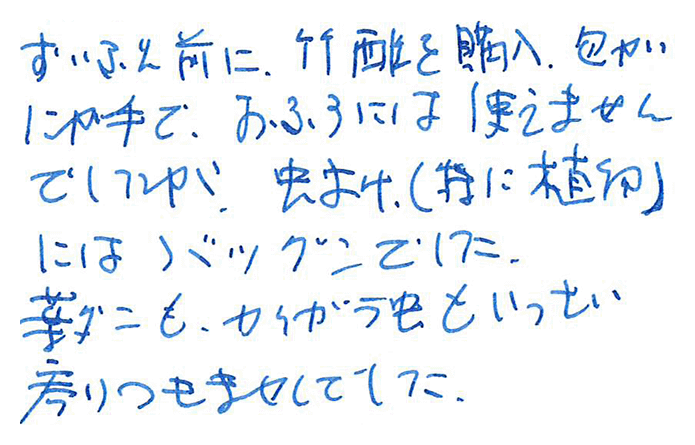 ずいぶん前に、竹酢を購入、匂いが
にが手で、おふろには使えません
でしたが、虫よけ、(特に植物)
にはバツグンでした。
葉ダニも、カイガラ虫もいっさい
寄りつきませんでした。